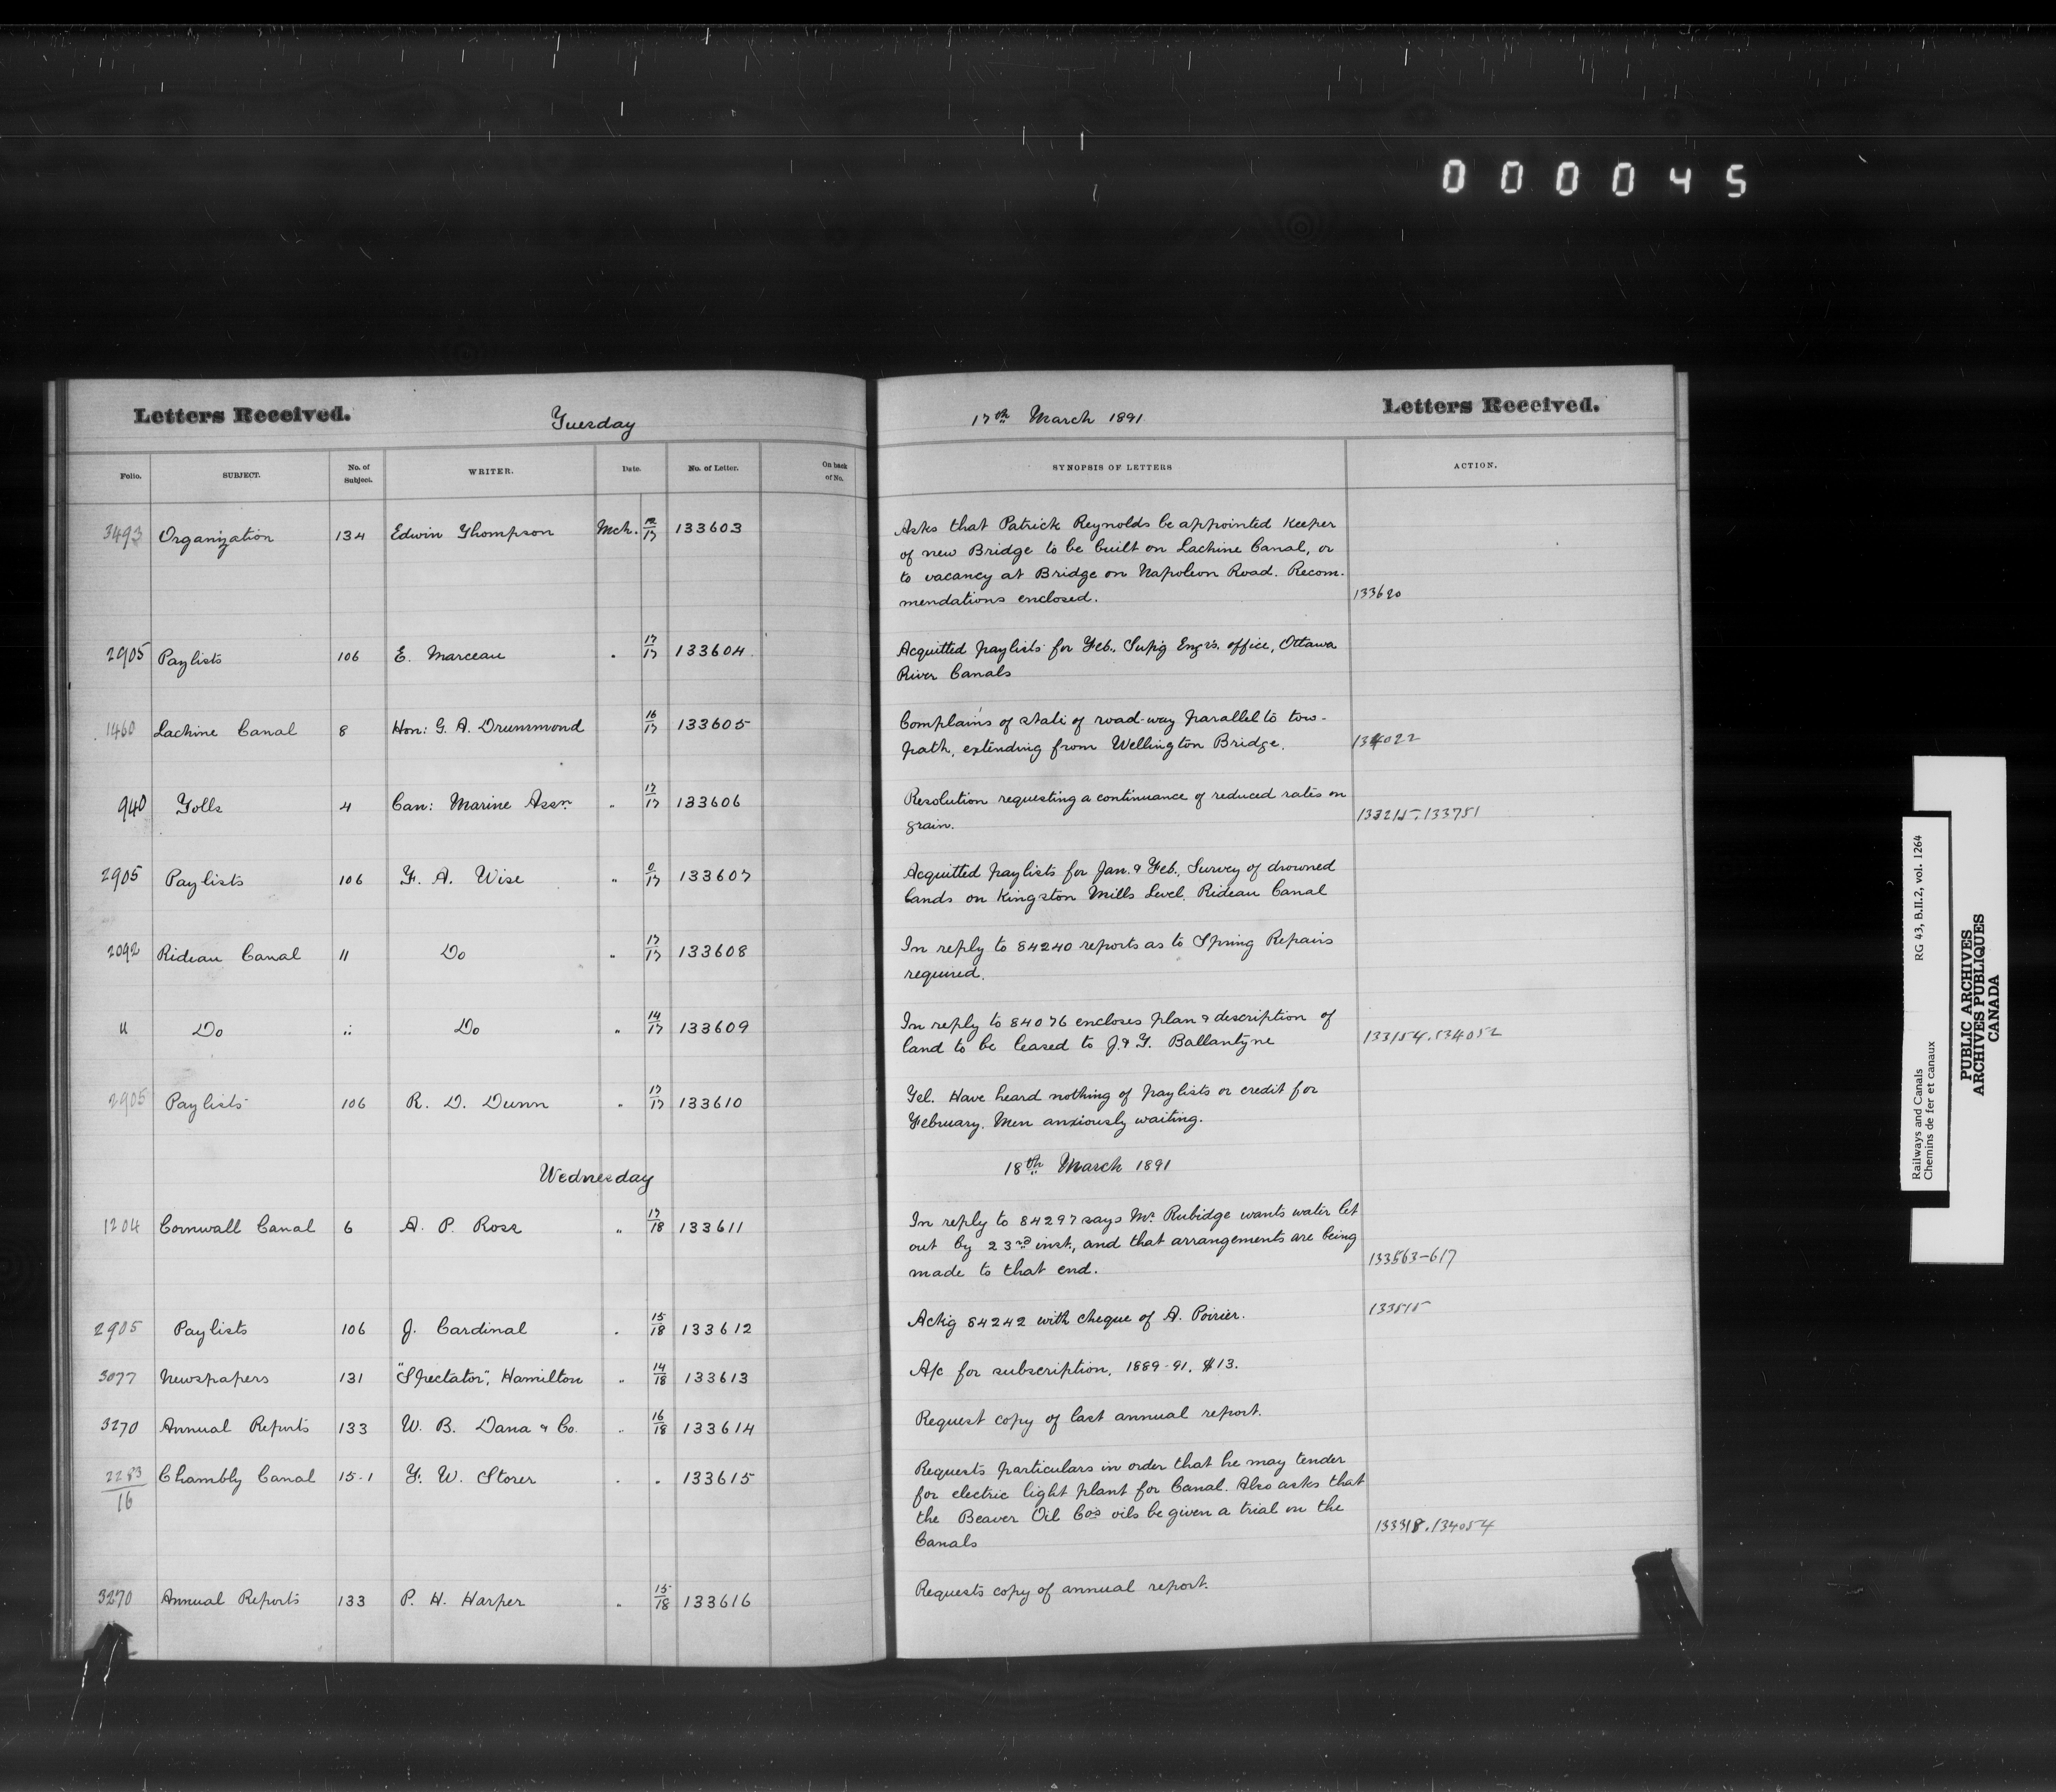 000045
Letters Received.
Tuesday
17th March 1891
Letters Received.
Folio. SUBJECT. No. of Subject. WRITER. Date. No. of Letter. On back of No. SYNOPSIS OF LETTERS ACTION.
3493 Organization 134 Edwin Thompson Mch. 12/17 133603 Asks that Patrick Reynolds be appointed Keeper
of new Bridge to be built on Lachine Canal, or
to vacancy at Bridge on Napoleon Road. Recom-
mendations enclosed. 133620
2905 Paylists 106 E. Marceau " 17/17 133604 Acquitted paylists for Feb., Sup'g Engr's. office, Ottawa
River Canals
1460 Lachine Canal 8 Hon: G. A. Drummond 16/17 133605 Complains of state of road-way parallel to tow-
path, extending from Wellington Bridge. 134022
940 Tolls 4 Can: Marine Assn. " 17/17 133606 Resolution requesting a continuance of reduced rates on
grain. 133215.133751
2905 Paylists 106 F. A. Wise " /17 133607 Acquitted paylists for Jan. & Feb., Survey of drowned
lands on Kingston Mills Level, Rideau Canal
2092 Rideau Canal 11 Do " 17/17 133608 In reply to 84240 reports as to Spring Repairs
required.
" Do " Do " 14/17 133609 In reply to 84076 encloses plan & description of
land to be leased to J. & T. Ballantyne 133154.134052
2905 Paylists 106 R. D. Dunn " 17/17 133610 Tel. Have heard nothing of paylists or credit for
February. Men anxiously waiting.
Wednesday 18th March 1891
1204 Cornwall Canal 6 A. P. Ross " 17/18 133611 In reply to 84297 says Mr. Rubidge wants water let
out by 23rd inst., and that arrangements are being
made to that end. 133563-617
2905 Paylists 106 J. Cardinal " 15/18 133612 Ackg 84242 with cheque of A. Poirier. 133515
3077 Newspapers 131 "Spectator", Hamilton " 14/18 133613 A/c for subscription, 1889-91. $13.
3270 Annual Reports 133 W. B. Dana & Co. " 16/18 133614 Request copy of last annual report.
2283/16 Chambly Canal 15-1 F. W. Storer " " 133615 Requests particulars in order that he may tender
for electric light plant for Canal. Also asks that
the Beaver Oil Co's oils be given a trial on the
Canals 133318.134054
3270 Annual Reports 133 P. H. Harper " 15/18 133616 Requests copy of annual report.
Railways and Canals RG 43, B.II.2, vol. 1264
Chemins de fer et canaux
PUBLIC ARCHIVES
ARCHIVES PUBLIQUES
CANADA